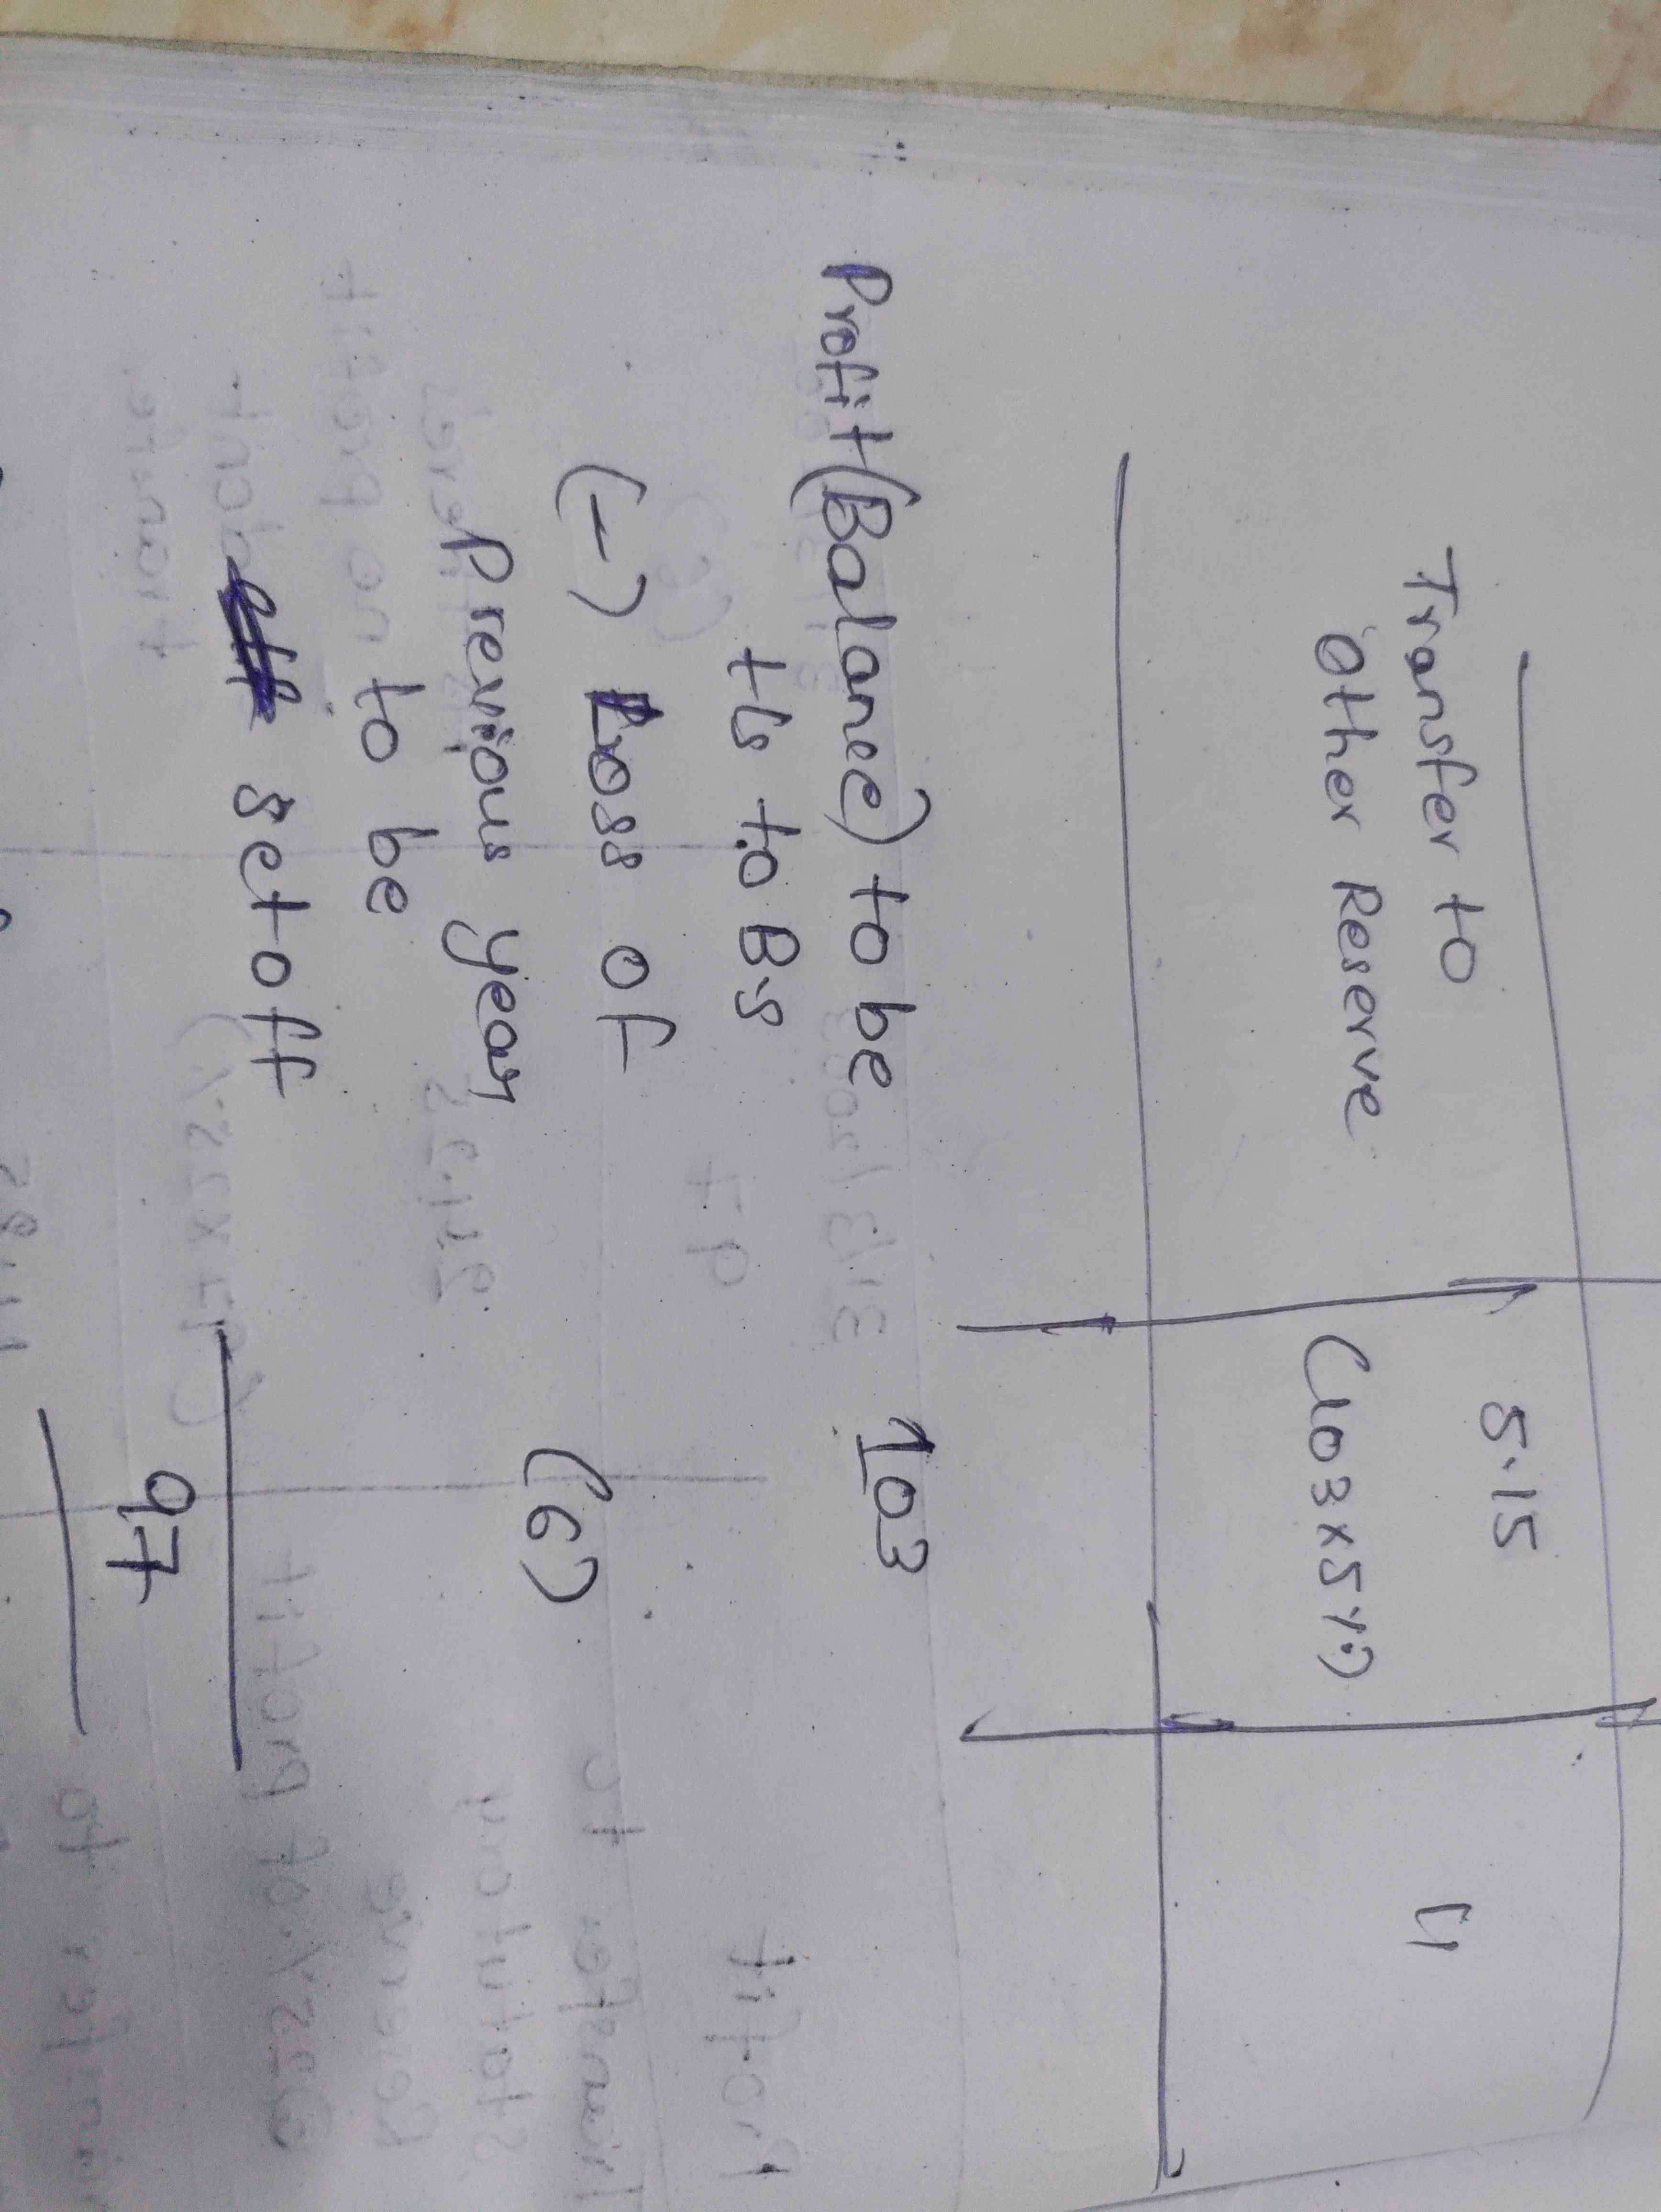 Transfer to 5.15 4
Other Reserve (103 x 5%)
Profit (Balance) to be 103
tfs to B.S
(-) Loss of (6)
Previous year
to be
set off
97